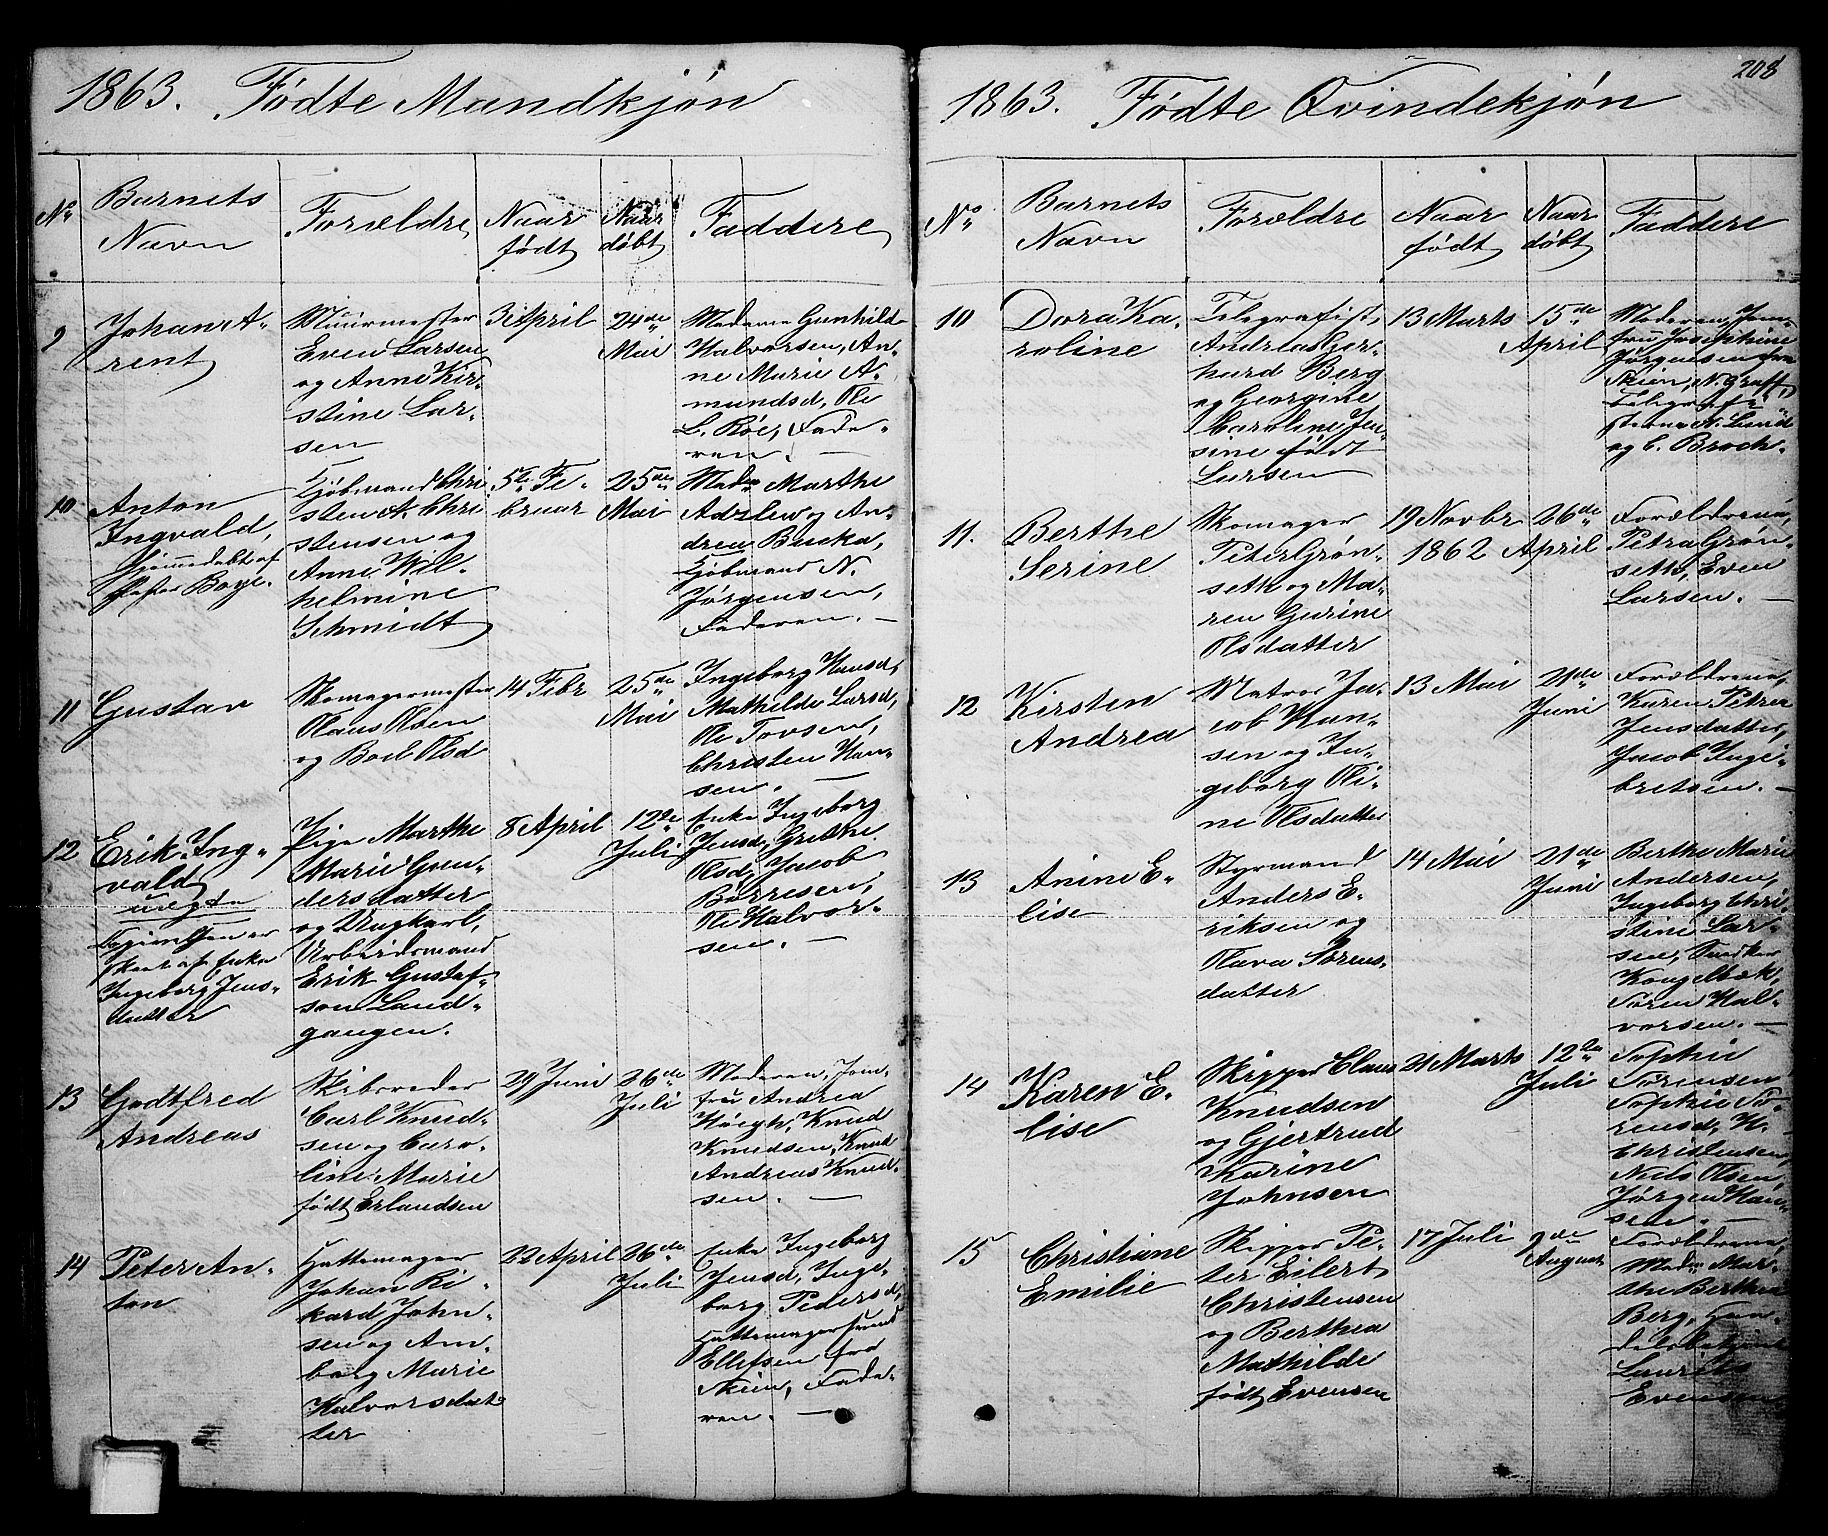 1863. Fødte Mandkjøn
No
Barnets
Navn
Forældre
Naar
født
Naar
døbt
Faddere
9
Johan A-
rent
Muurmester
Even Larsen
og Anne Kir-
stine Lar-
sen
3 April
24de
Mai
Madame Gunhild
Halvorsen, An-
ne Marie A-
mundsd, Ole
L. Röer, Fade-
ren. —
10
Anton
Ingvald,
Hjemmedøbt af
Pastor Boye.
Kjöbmand Chri
sten A. Chri
stensen og
Anne Wil-
helmine
Schmidt
5te Fe-
bruar
25de
Mai
Mad. Marthe
Adslew, An-
drea Bucka,
Kjöbmand N.
Jørgensen,
Faderen. —
11
Gustav
Skomagermester
Olaus Olsen
og Boel Olsd
14 Febr
25de
Mai
Ingeborg Hansd,
Mathilde Larsd,
Ole Tovsen,
Christen Han-
sen. —
12
Erik Ing-
vald
uægte
skeet af Enke
Ingeborg Jens-
datter
Pige Marthe
Marie Gun-
dersdatter
og Ungkarl,
Arbeidsmand
Erik Gustaf-
son Land-
gangen.
8 April
12te
Juli
Enke Ingeborg
Jensd, Grethe
Olsd, Jacob
Börresen,
Ole Halvor-
sen. —
13
Godtfred
Andreas
Skibsreder
Carl Knud-
sen og Caro-
line Marie
født Erlandsen
29 Juni
26de
Juli
Moderen, Jom-
fru Andrea
Höegh, Knud
Knudsen, Knud
Andreas Knud-
sen. —
14
Peter An-
ton
Hattemager
Johan Ri-
kard John-
sen og Am-
borg Marie
Halvorsdat-
ter
22 April
26de
Juli
Enke Ingeborg
Jensd, Inge-
borg Pedersd,
Hattemagersvend
Ellefsen fra
Skien, Fade-
ren. —
208
1863. Fødte Qvindekjøn
No
Barnets
Navn
Forældre
Naar
født
Naar
døbt
Faddere
10
Dora Ka-
roline
Telegrafist
Andreas Ger-
hard Berg
og Georgine
Caroline Jen-
sine født
Larsen
13 Marts
15de
April
Moderen, Jom-
fru Josephine
Jörgensen fra
Skien, N. Graff,
Telegrafi-
sterne N. Lund
og C. Brock.
11.
Berthe
Serine
Skomager
Peter Grön-
seth og Ma-
ren Gurine
Olsdatter
19 Novbr
1862
26de
April
Forældrene,
Petra Grön-
seth, Even
Larsen. —
12
Kirsten
Andrea
Matros Ja-
cob Han-
sen og In-
geborg Oli-
ne Olsdatter
13 Mai
21de
Juni
Forældrene,
Karen Petrea
Jensdatter,
Jacob Inge-
bretsen. —
13
Anine E-
lise
Styrmand
Anders E-
riksen og
Olava Sörens-
datter
14 Mai
21de
Juni
Berthe Marie
Andersen,
Ingeborg Chri-
stine Lar-
sen, Snedker
Kongelbæk,
Sören Hal-
vorsen. —
14
Karen E-
lise
Skipper Claus
Knudsen
og Gjertrud
Karine
Johnsen
21 Marts
12te
Juli
Sophie
Sörensen
Sophie Sö-
rensd, H.
Christensen,
Niels Olsen,
Jörgen Han-
sen. —
15
Christiane
Emilie
Skipper Pe-
ter Eilert
Christensen
og Berthea
Mathilde
født Evensen
17 Juli
9de
August
Forældrene,
Mad. Mar-
the Berthea
Berg, Han-
delsbetjent
Lauritz
Evensen